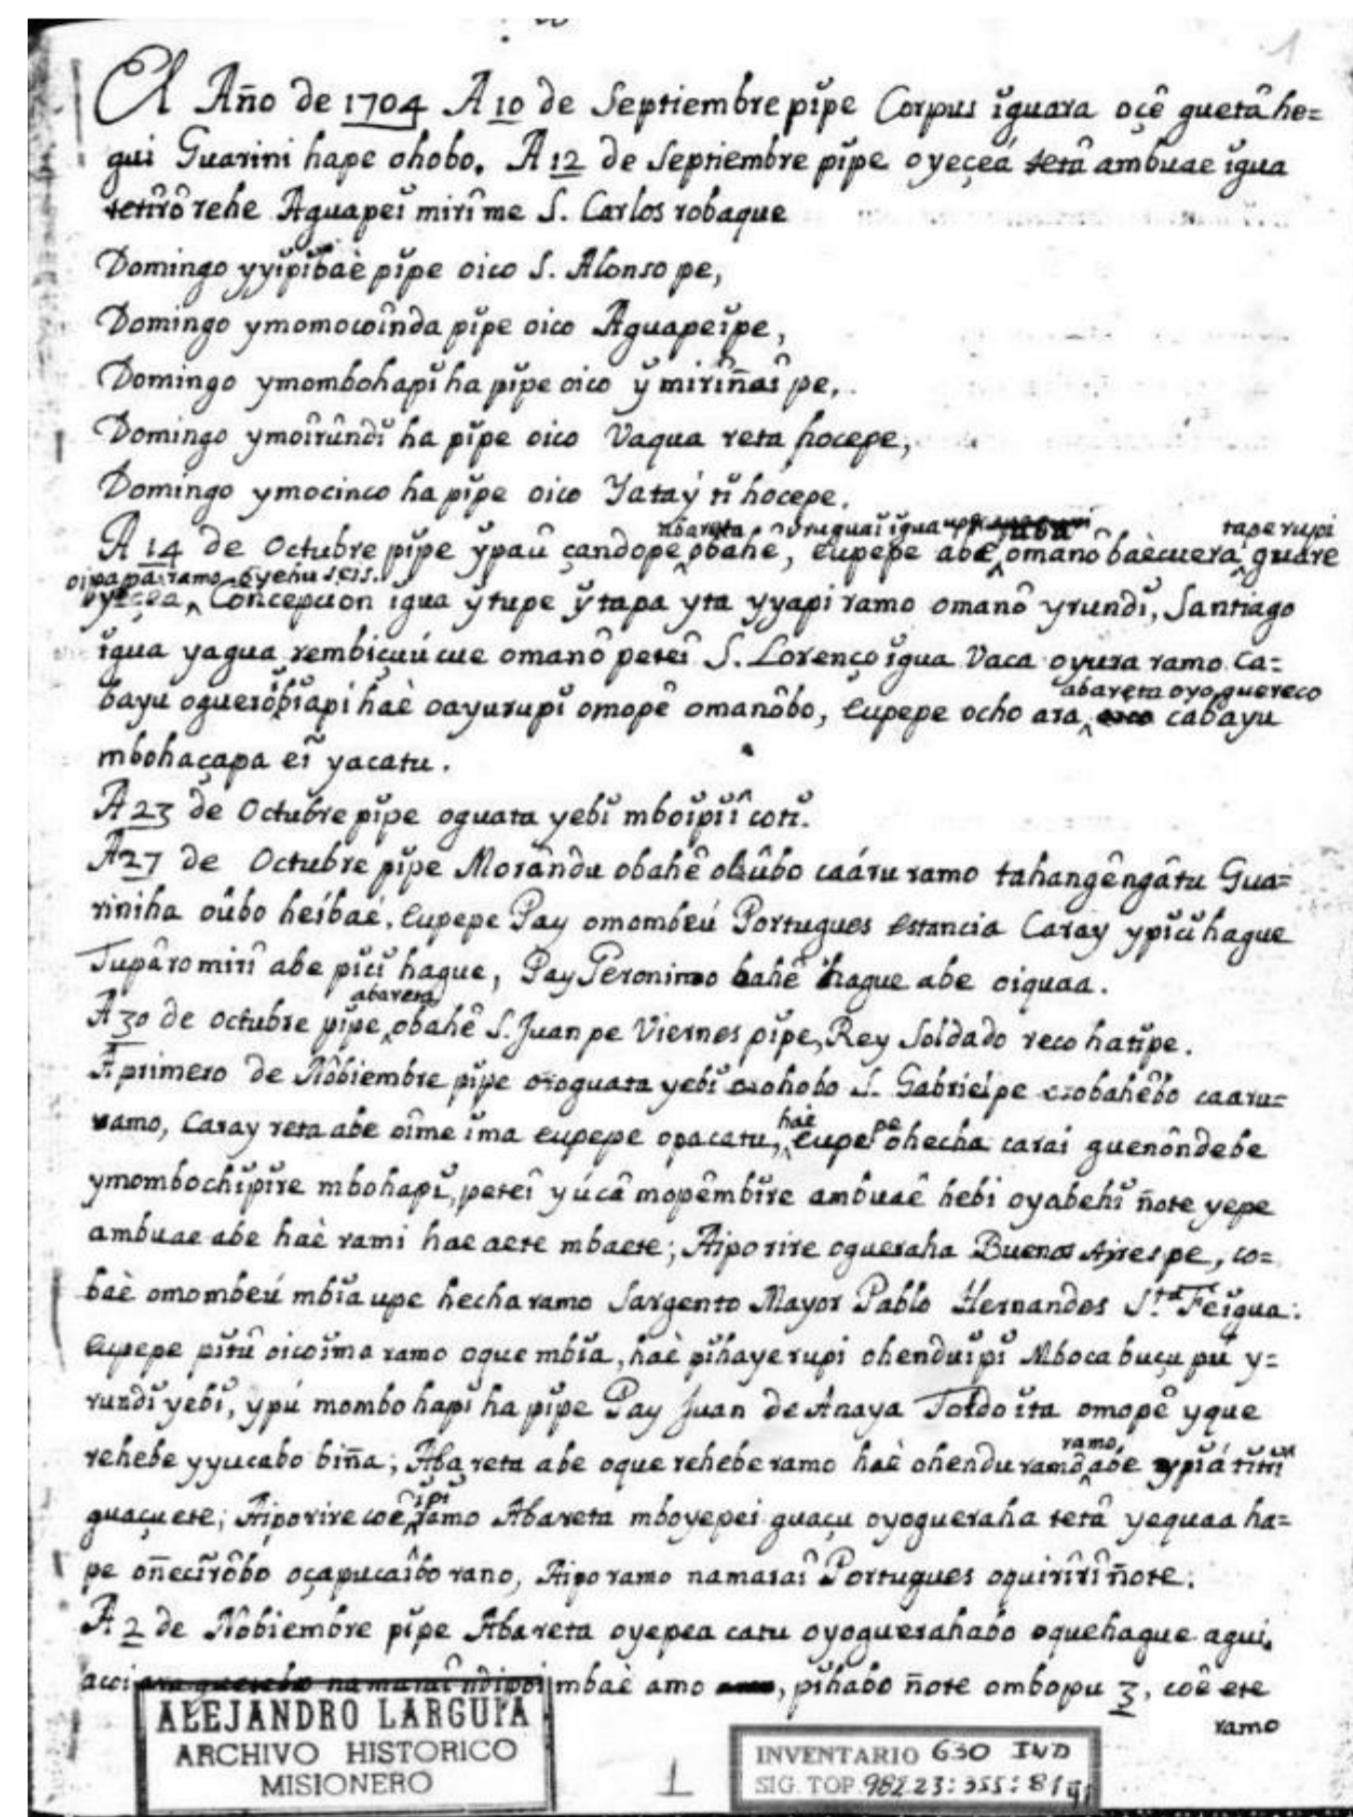 1
El Año de 1704 A 10 de Septiembre pĭpe Corpus ĭguara oçê guetâ he=
gui Guarini hape ohobo. A 12 de Septiembre pĭpe oyeçeá tetâ ambuae ĭgua
tetirô rehe Aguapeĭ mirî me S. Carlos robaque
Domingo yyĭpĭbaè pĭpe oico S. Alonso pe,
Domingo ymomocoînda pĭpe oico Aguapeĭpe,
Domingo ymombohapĭ ha pĭpe oico y̆ mirîñaî pe,
Domingo ymoîrûndĭ ha pĭpe oico Vaqua reta hocepe,
Domingo ymocinco ha pĭpe oico Yataý tĭ hocepe.
abareta Uruguaĭ ĭgua tape rupi
A 14 de Octubre pĭpe y̆paû çandope obahê, eupepe abe omanô baècuera guare
oipapa ramo oyehu seis
Concepcion ĭgua y̆tupe y̆tapa yta yyapi ramo omanô yrundĭ, Santiago
ĭgua yagua rembiçuú cue omanô peteî S. Lorenço ĭgua Vaca oyura ramo ca=
abareta oyoguereco
bayu oguerobĭapi haè oayurupĭ omopê omanôbo, eupepe ocho ara cabayu
mbohaçapa eĭ̂ yacatu.
A 23 de Octubre pĭpe oguata yebĭ mboĭpĭî cotĭ.
A 27 de Octubre pĭpe Morându obahê oûbo caáru ramo tahangêngâtu Gua=
riniha oûbo heíbaé, eupepe Pay omombeú Portugues Estancia Caray ypĭcĭ hague
Tupâromirî abe pĭcĭ hague, Pay Peronimo bahê hague abe oiquaa.
abareta
A 30 de Octubre pĭpe obahê S. Juan pe Viernes pĭpe, Rey Soldado reco hatĭpe.
A primero de Nôbiembre pĭpe oroguata yebĭ orohobo S. Gabriel pe orobahêbo caaru=
haè pe
ramo, Caray reta abe oîme ĭma eupepe opacatu, eupe ohecha carai guenôndebe
ymombochĭpĭre mbohapĭ, peteî yúcâ mopêmbĭre ambuaê hebi oyabehĭ ñote yepe
ambuae abe haè rami hae aete mbaete; Aiporire ogueraha Buenos Ayres pe, co=
baè omombeú mbĭa upe hecha ramo Sargento Mayor Pablo Hernandes S.ta Fe ĭgua:
eupepe pĭtû oico ĭma ramo oque mbĭa, haè pĭhaye rupi ohenduĭpĭ Mboca buçu pú y=
rundĭ yebĭ, ypú mombohapĭ ha pĭpe Pay Juan de Anaya Toldo ĭta omopê yque
ramo
rehebe yyucabo biña; Abareta abe oque rehebe ramo haè ohendu ramô abe ypĭá tĭtĭĭ
ĭpĭ
guaçu ete; Aiporire coê ramo Abareta mboyepei guaçu oyogueraha tetâ yequaa ha=
pe oñecĭrôbo oçapucaîbo rano, Aiporamo namaraî Portugues oquirîrî ñote:
A 2 de Nôbiembre pĭpe Abareta oyepea catu oyoguerahabo oquehague agui,
mbaè amo, pĭhabo ñote ombopu 3, coê ete
ramo
ALEJANDRO LARGUIA
ARCHIVO HISTORICO
MISIONERO
1
INVENTARIO 630 IND
SIG. TOP.